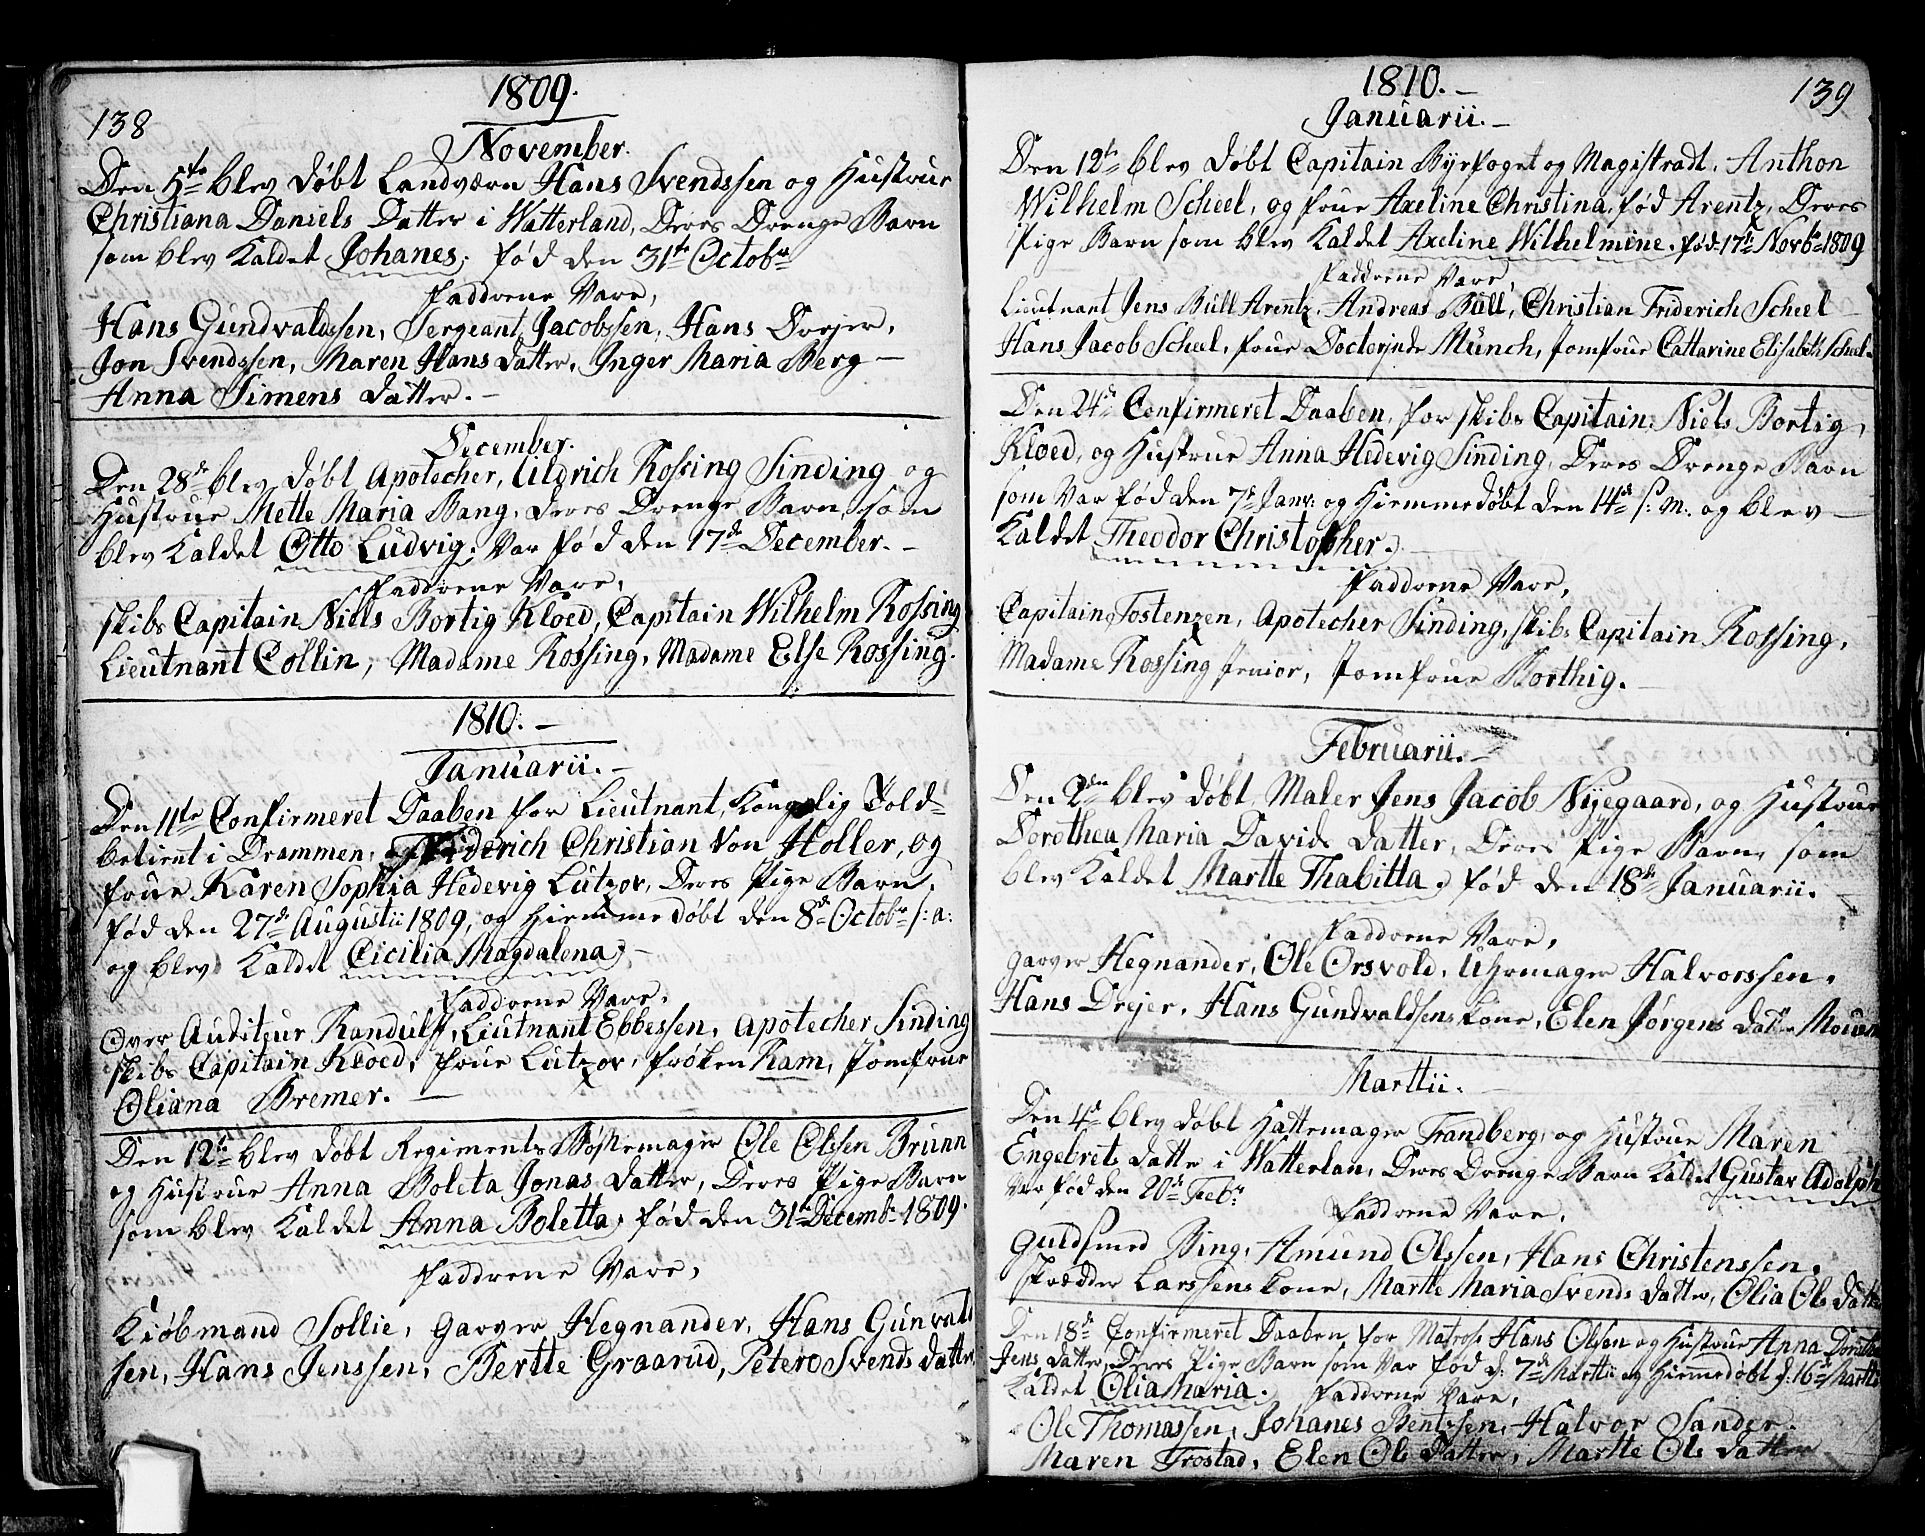 138
1809.
November.
Den 5te blev døbt Landværn Hans Svendssen og Hustrue
Christiana Daniels Datter i Watterland, Deres Drenge Barn
som blev Kaldet Johanes, fød den 31te Octobr
Faddrene Vare,
Hans Gundvaldssen, Sergeant Jacobssen, Hans Drejer,
Jon Svendssen, Maren Hans Datter, Inger Maria Berg —
Anna Simens Datter. —
December.
Den 28de blev døbt Apotecher, Uldrich Rossing Sinding og
Hustrue Mette Maria Bang, deres Drenge Barn, som
blev Kaldet Otto Ludvig, Var fød den 17de December. —
Faddrene Vare,
Skibs Capitain Niels Bortig Kloed, Capitain Wilhelm Rossing
Lieutnant Collin, Madame Rossing, Madame Else Rossing.
1810. —
Januarii. —
Den 11te Confirmeret Daaben for Lieutnant, Kongelig Told-
betient i Drammen, Friderich Christian Von Holler, og
Frue Karen Sophia Hedevig Lutzov, Deres Pige Barn,
fød den 27de Augustii 1809, og Hiemmedøbt den 8de Octobr s: a:
og blev Kaldet Cicilia Magdalena, —
Faddrene Vare,
Over Auditeur Randulff, Lieutnant Ebbessen, Apotecher Sinding
Skibs Capitain Kloed, Frue Lutzov, Frøken Ram, Jomfrue
Oliana Bremer. —
Den 12te blev døbt Regiments Bøssemager Ole Olssen Brunn
og Hustrue Anna Boleta Jonas Datter, Deres Pige Barn
som blev Kaldet Anna Boletta, fød den 31te Decembr 1809.
Faddrene Vare,
Kiøbmand Sollie, Garver Hegnander, Hans Gunvald
sen, Hans Jenssen, Bertte Graarud, Petero Svends Datter
139
1810. —
Januarii. —
Den 12te blev døbt Capitain Byefoget og Magistradt, Anthon
Wilhelm Scheel, og Frue Axeline Christina, fød Arentz, Deres
Pige Barn som blev Kaldet Axeline Wilhelmine. fød. 17de Novbr 1809
Faddrene Vare,
Lieutnant Jens Bull Arentz, Andreas Bull, Christian Friderich Scheel
Hans Jacob Scheel, Frue Doctorjnde Münch, Jomfrue Cattarine Elisabeth Scheel.
Den 24de Confirmeret Daaben, for Skibs Capitain Niels Bortig,
Kloed, og Hustrue Anna Hedevig Sinding, Deres Drenge Barn
som Var fød den 7de Janv: og Hiemmedøbt den 14de s: M. og blev —
Kaldet Theodor Christopher. —
Faddrene Vare,
Capitain Tostenzen, Apotecher Sinding, Skibs Capitain Rossing,
Madame Rossing Jenior, Jomfrue Borthig. —
Februarii. —
Den 2den blev døbt Maler Jens Jacob Nyegaard, og Hustrue
Dorothea Maria Davids Datter, Deres Pige Barn, som
blev Kaldet Martte Thabitta, fød den 18de Januarii. —
Faddrene Vare,
Garver Hegnander, Ole Orsvold, Uhrmager Halvorssen,
Hans Drejer, Hans Gundvaldsens Kone, Elen Jørgens Datter Mouen
Marttii. —
Den 4de blev døbt Hattemager Trandberg, og Hustrue Maren
Engebrets Datter i Watterlan, Deres Drenge Barn Kaldet Gustav Adolph
Var fød den 20de Febr
Faddrene Vare,
Guldsmed Bing, Amund Olssen, Hans Christenssen,
Skrædder Larssens Kone, Martte Maria Svends Datter, Olia Ols Datter
Den 18de Confirmeret Daaben for Matros Hans Olsen og Hustrue Anna Dorothea
Jens Datter, Deres Pige Barn som Var fød d: 7de Marttii og Hiemmedøbt d: 16de Marttii
Kaldet Olia Maria. Faddrene Vare,
Ole Thomassen, Johanes Bentssen, Halvor Sander
Maren Trostad, Elen Ols Datter, Martte Ols Datter